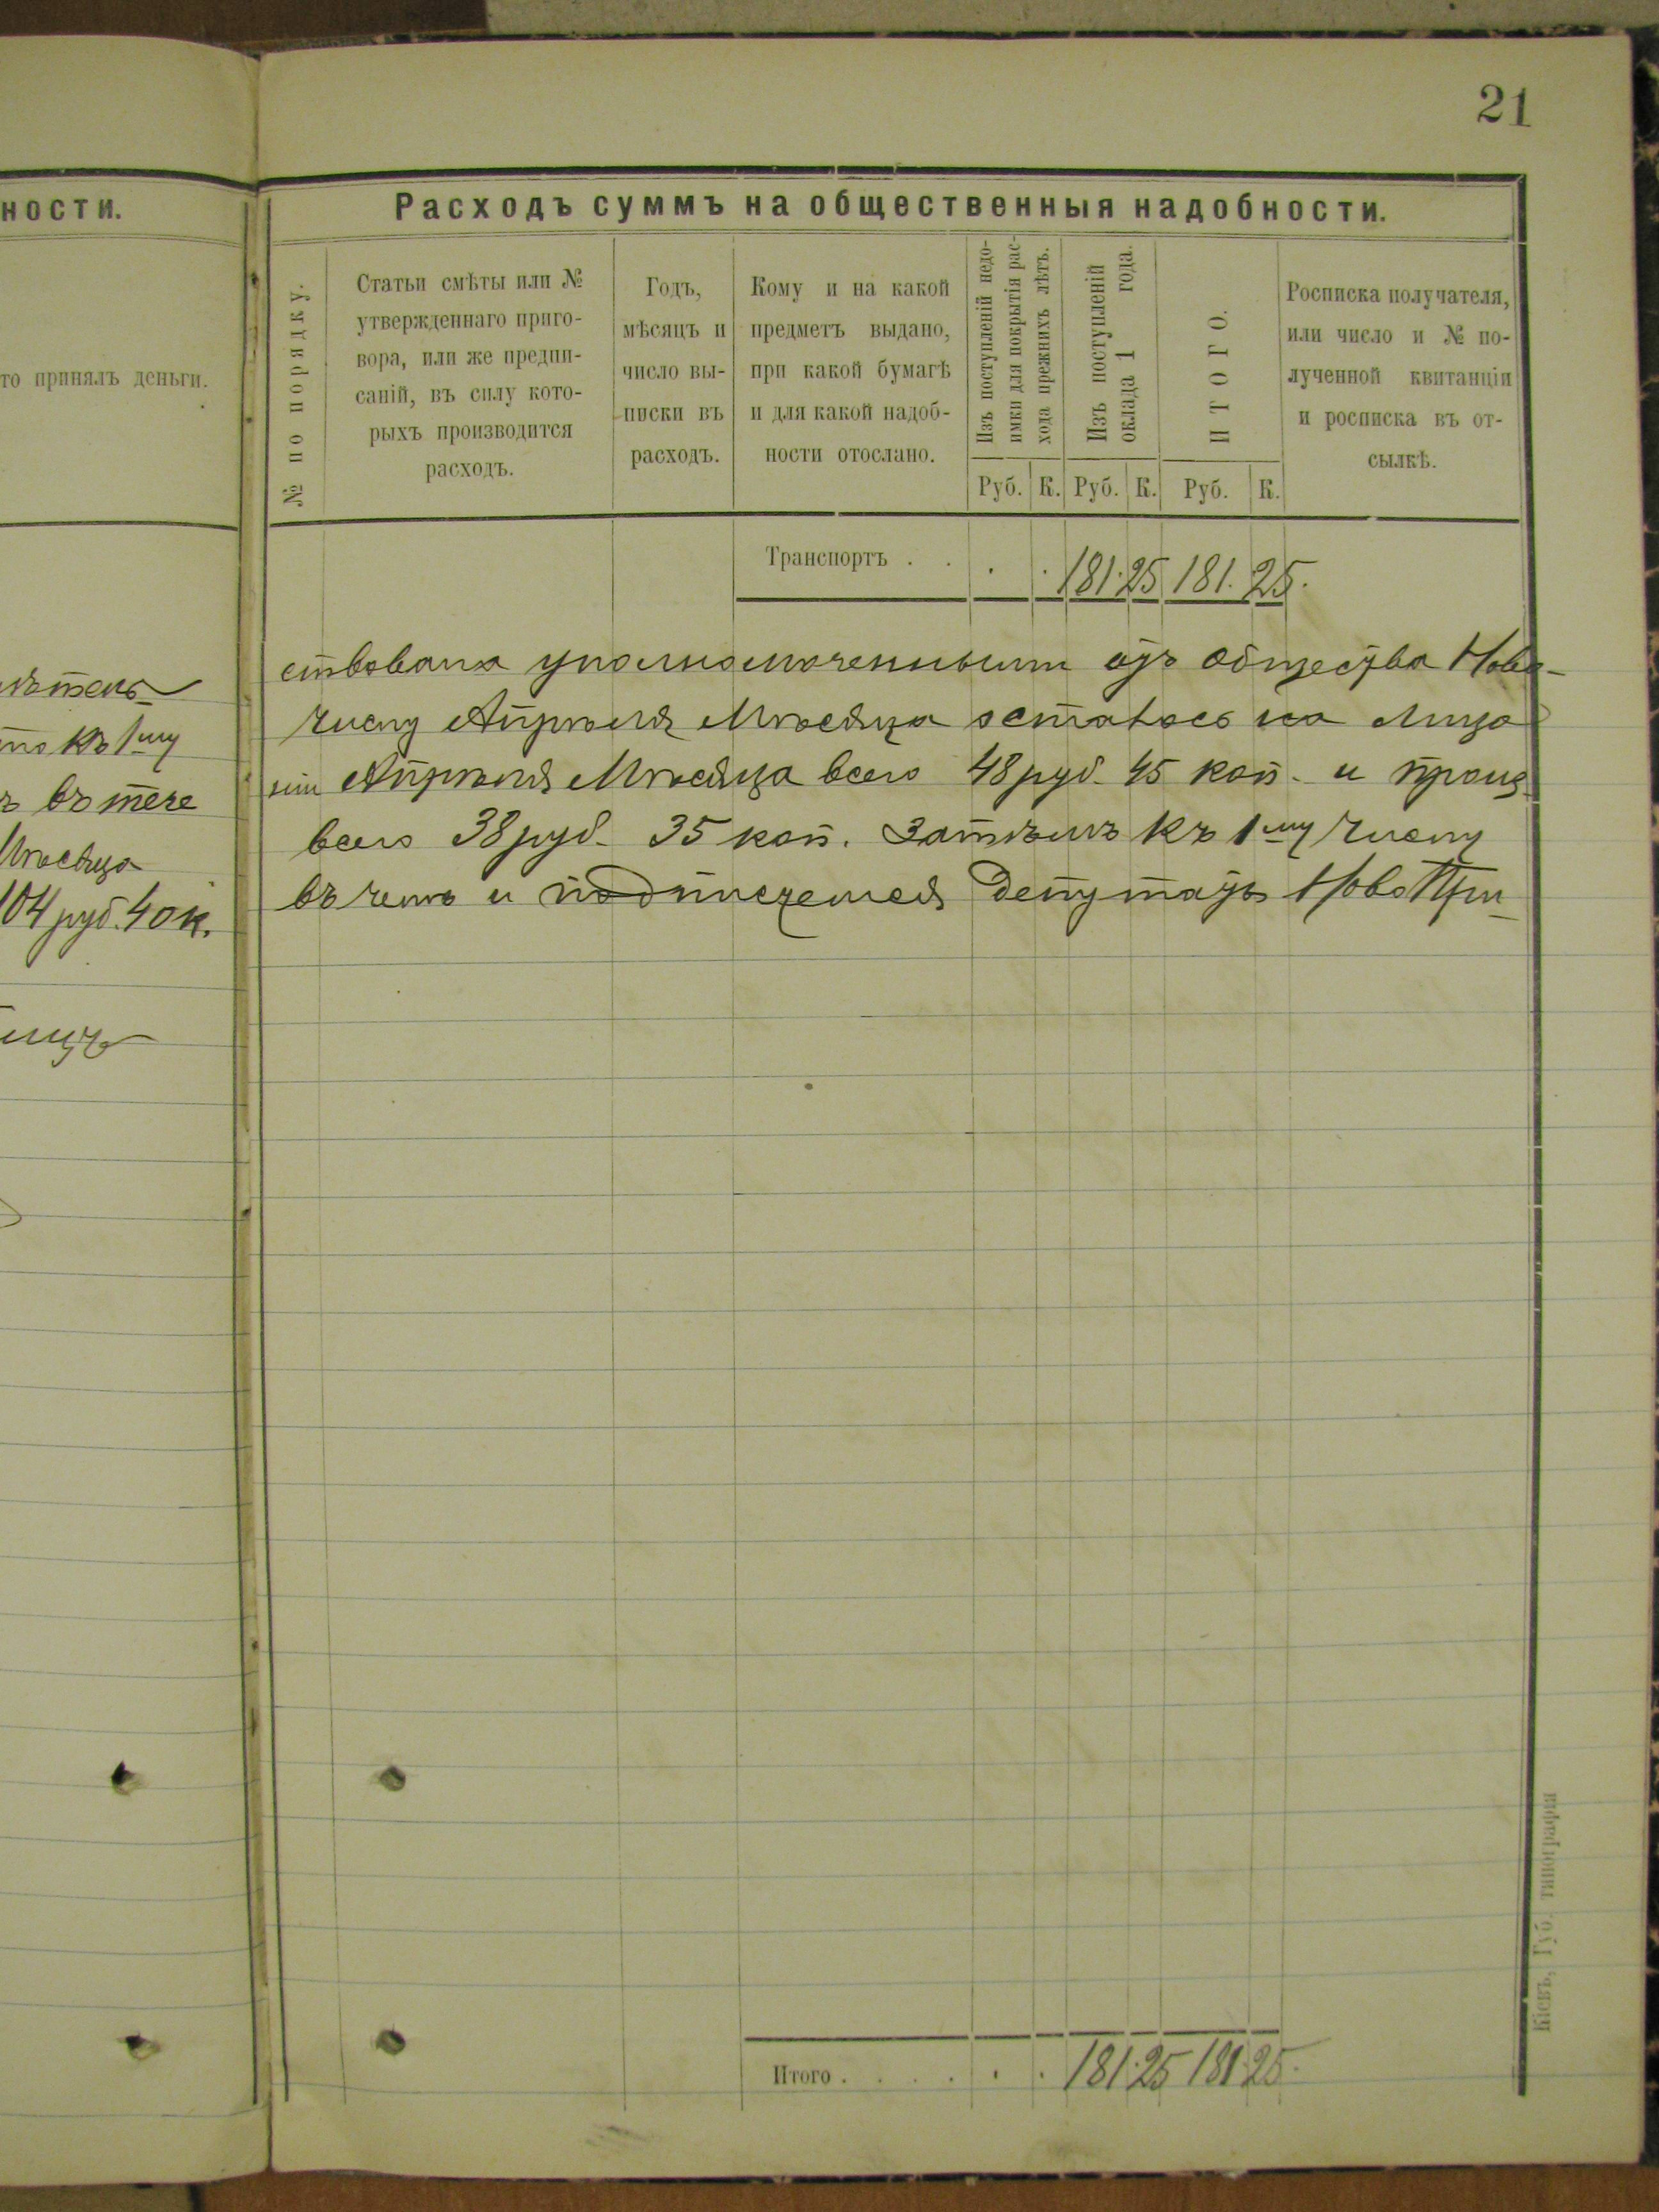 ности.
то принялъ деньги.
къ 1му
въ тече
Мѣсяца
104 руб. 40 к.
21
Расходъ суммъ на общественныя надобности.
№ по порядку.
Статьи смѣты или №
утвержденнаго приго-
вора, или же предпи-
саній, въ силу кото-
рыхъ производится
расходъ.
Годъ,
мѣсяцъ и
число вы-
писки въ
расходъ.
Кому и на какой
предметъ выдано,
при какой бумагѣ
и для какой надоб-
ности отослано.
Изъ поступленій недо-
имки для покрытія рас-
хода прежнихъ лѣтъ.
Изъ поступленій
оклада 1 года.
ИТОГО.
Росписка получателя,
или число и № по-
лученной квитанціи
и росписка въ от-
сылкѣ.
Руб. К. Руб. К. Руб. К.
Транспортъ . . . . 181.25 181.25.
ствована уполномоченнымъ отъ общества Ново-
числу Апрѣля Мѣсяца осталось на Лицо
ніи Апрѣля Мѣсяца всего 48 руб. 45 коп. и произ
всего 38 руб. 35 коп. Затѣмъ къ 1му числу
въ чемъ и подписуемся Депутатъ Ново При-
Итого . . . . . . 181.25 181.25.
Кіевъ, Губ. типографія